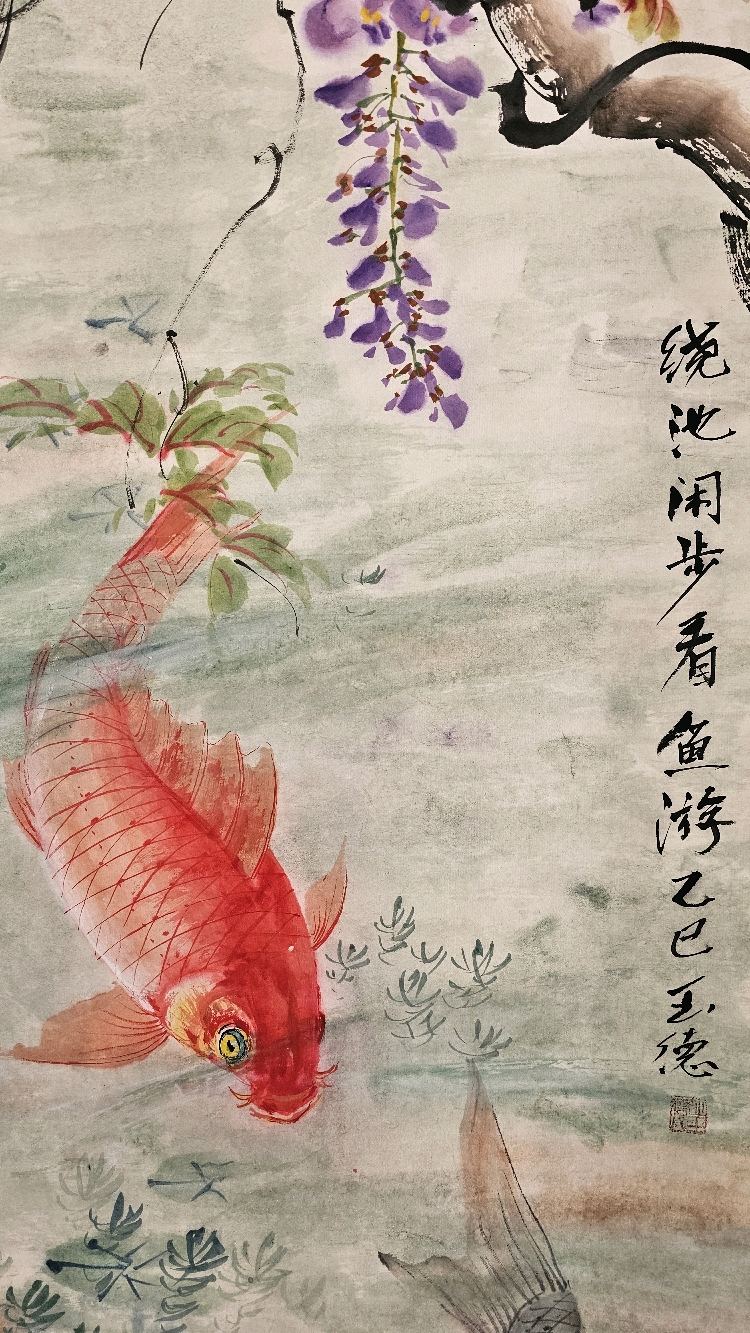 绕池闲步看鱼游乙巳玉德